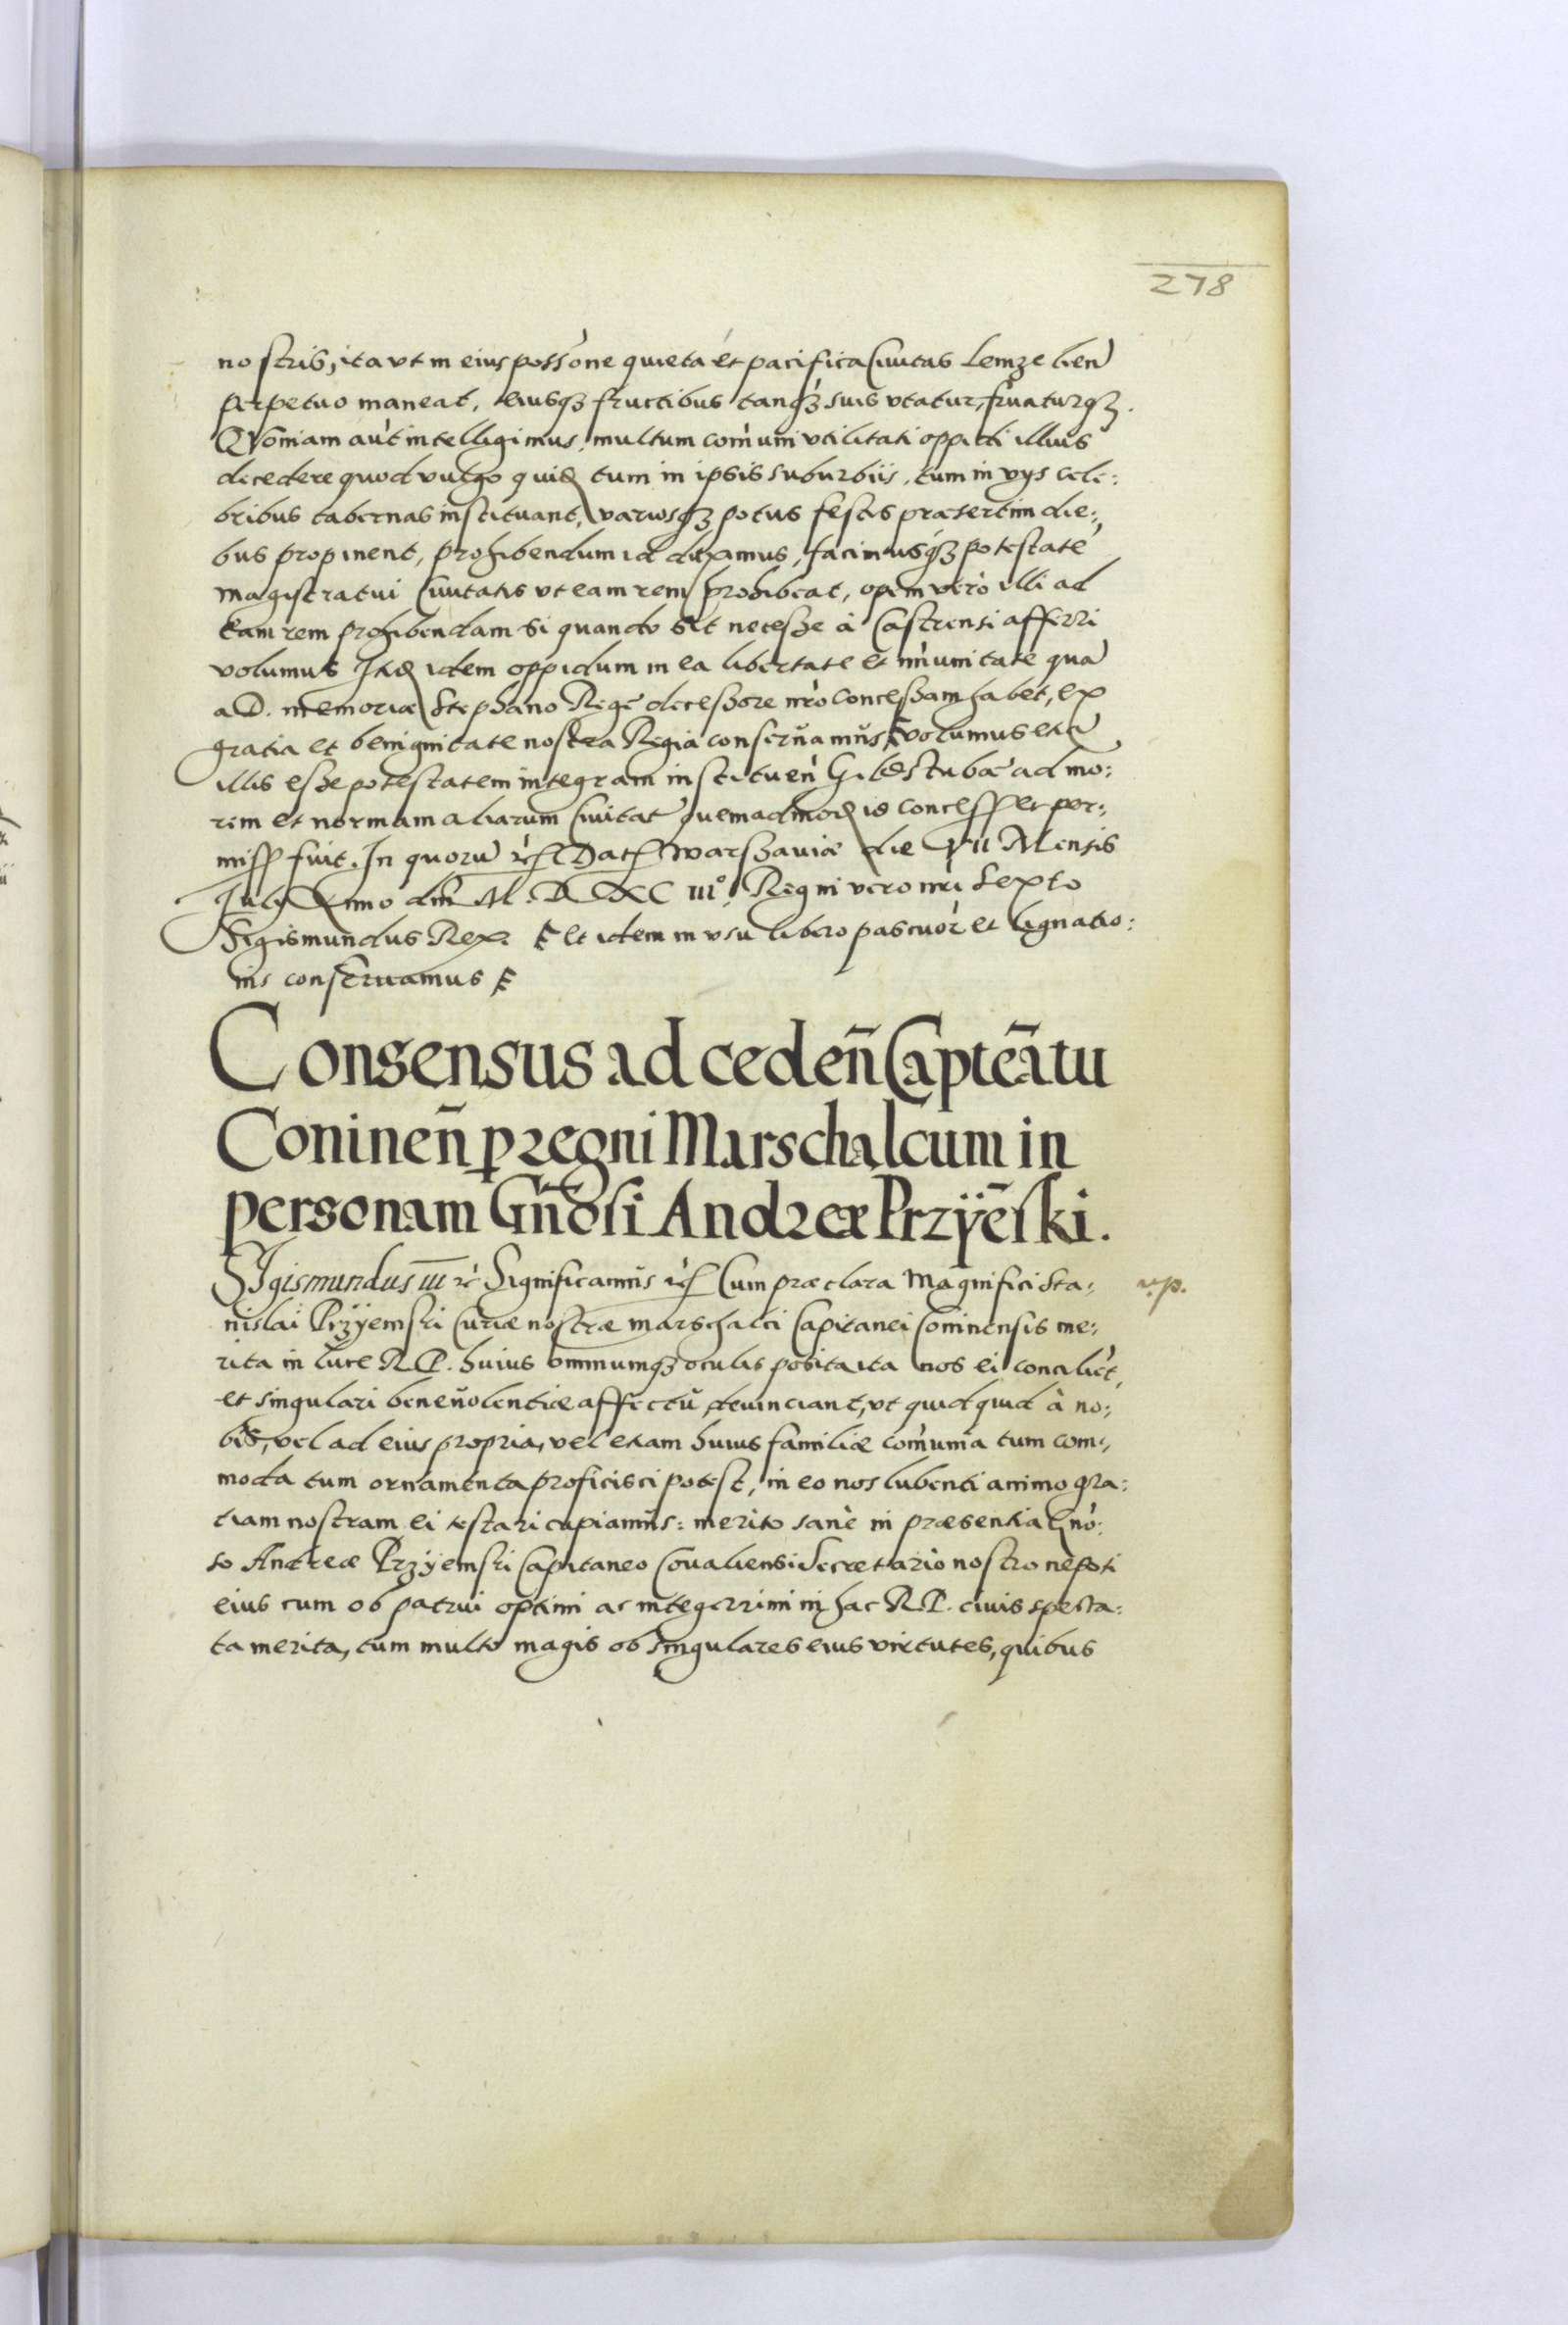 278
nostris, ita vt in eius possõne quieta et pacifica Ciuitas Lemzelien̄
perpetuo maneat, eiusqȝ fructibus tanqȝ suis vtatur, fruaturqȝ.
QVoniam aũt intelligimus, multum com̃uni vtilitati oppidi illius
decedere quod vulgo quidã tum in ipsis suburbiis, tum in vijs cele:
bribus tabernas instituant, variosqȝ potus festis præsertim die:
bus propinent, prohibendum id duximus, facimusqȝ potestatẽ
magistratui Ciuitatis vt eam rem prohibeat, opem vero illi ad
eam rem prohibendam si quando sit necesse à Castrensi afferri
volumus Itẽ idem oppidum in ea libertate et im̃unitate quã
a D. memoriæ Stephano Rege decessore nr̃o concessam habet, ex
gratia et benignitate nostra Regia conseruamus, volumus etiã
illis esse potestatem integram instituen̄ Gildstubæ ad mo:
rem et normam aliarum Ciuitat quemadmodũ id concess et per:
miss fuit. In quorũ rc̃ Dat Warschauiæ die VII Mensis
Iulij Anno dñi M. D XC III°, Regni vero nr̃i Sexto
Sigismundus Rex. et idem in vsu libero pascuor̃ et lignatio:
nis conseruamus
Consensus ad ceden̄ Capteātu
Coninen̄ p regni Marschalcum in
personam Gn̄osi Andreæ Przÿēski.
SIgismundus III rc̃ Significamus rc̃ Cum præclara Magnifici Sta:
nislai Przÿemski Curiæ nostræ marschalci Capitanei Coninensis me:
rita in luce R P. huius omniumqȝ oculis posita ita nos ei concilient,
et singulari beneuolentiæ affectu deuinciant, vt quidquid à no:
bis, vel ad eius propria, vel etiam huius familiæ com̃unia tum com:
moda tum ornamenta proficisci potest, in eo nos lubenti animo gra:
tiam nostram ei testari cupiamus: merito sanè in præsentia Gñò:
so Andreæ Przÿemski Capitaneo Coualiensi Secretario nostro nepoti
eius cum ob patrui optimi ac integerrimi in hac R P. ciuis specta:
ta merita, tum multo magis ob singulares eius virtutes, quibus
v.p.